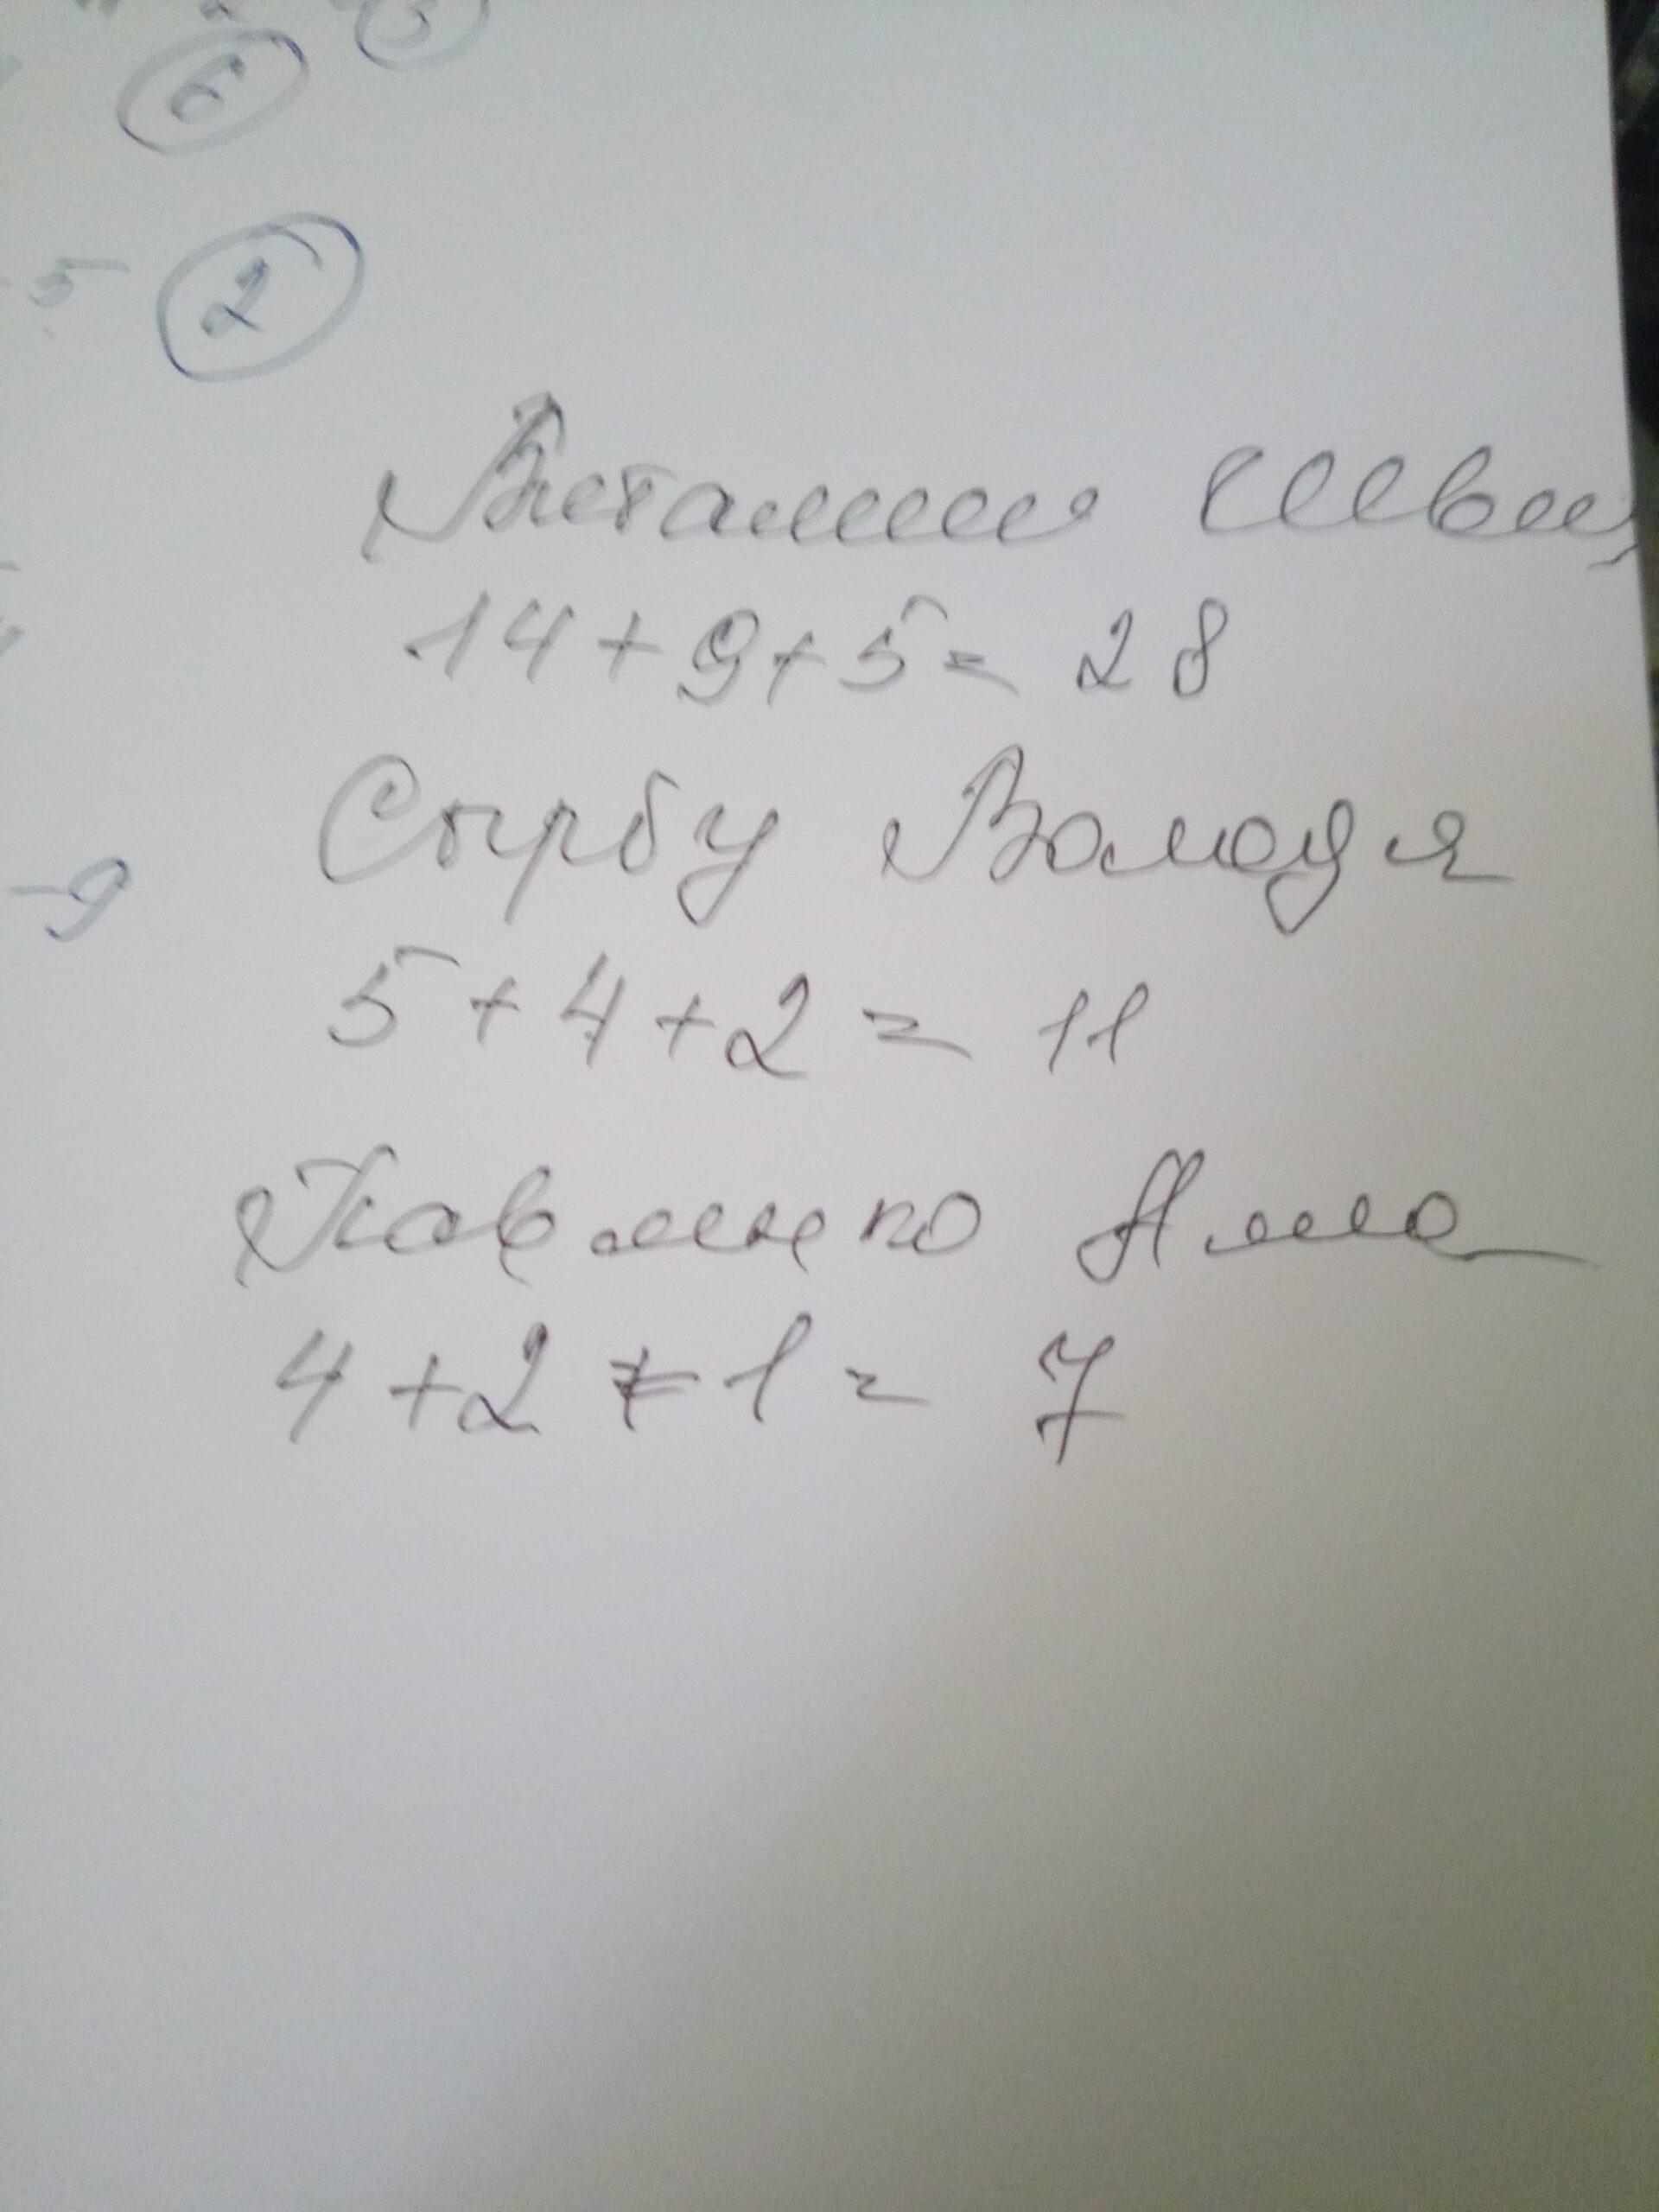 6
5 2
Виталий Швец
14 + 9 + 5 = 28
Сырбу Володя
- 9
5 + 4 + 2 = 11
Павленко Алла
4 + 2 + 1 = 7